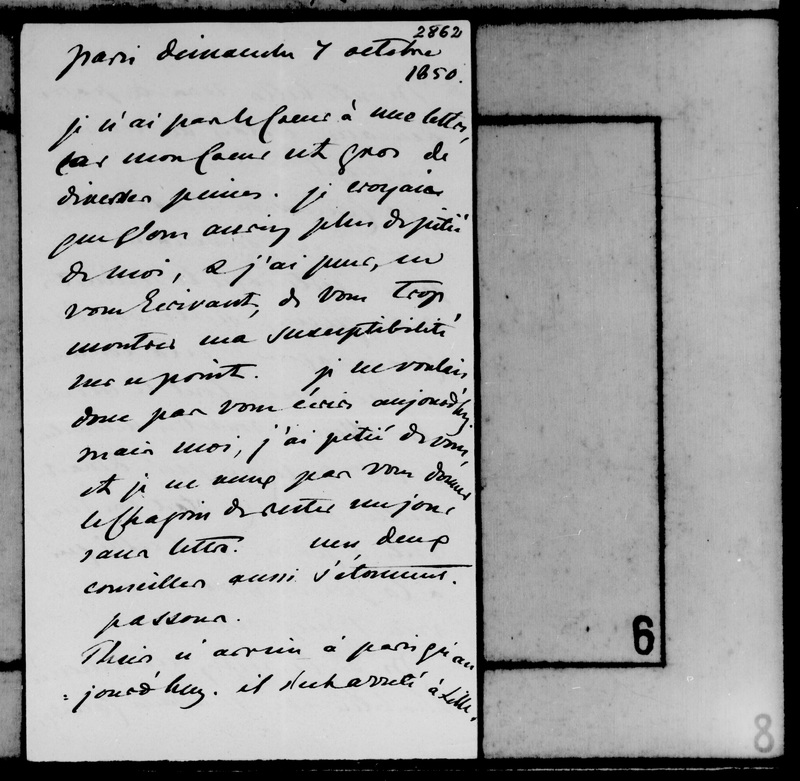 2862
paris dimanche 7 octobre
1850.
je n'ai pas le coeur à une lettre,
car mon coeur est gros de
diverses peines. je croyais
que vous auriez plus de pitié
de moi, & j'ai peur, en
vous écrivant, de vous trop
montrer ma susceptibilité
sur ce point. je ne voulais
donc pas vous écrire aujourd'huy.
mais moi, j'ai pitié de vous,
et je ne veux pas vous donner
le chagrin de rester un jour
sans lettre. mes deux
conseillers aussi s'étonnent.
passons.
Thiers n'arrive à paris qu'au
=jourd'huy. il s'est arrêté à Lille.
6
8